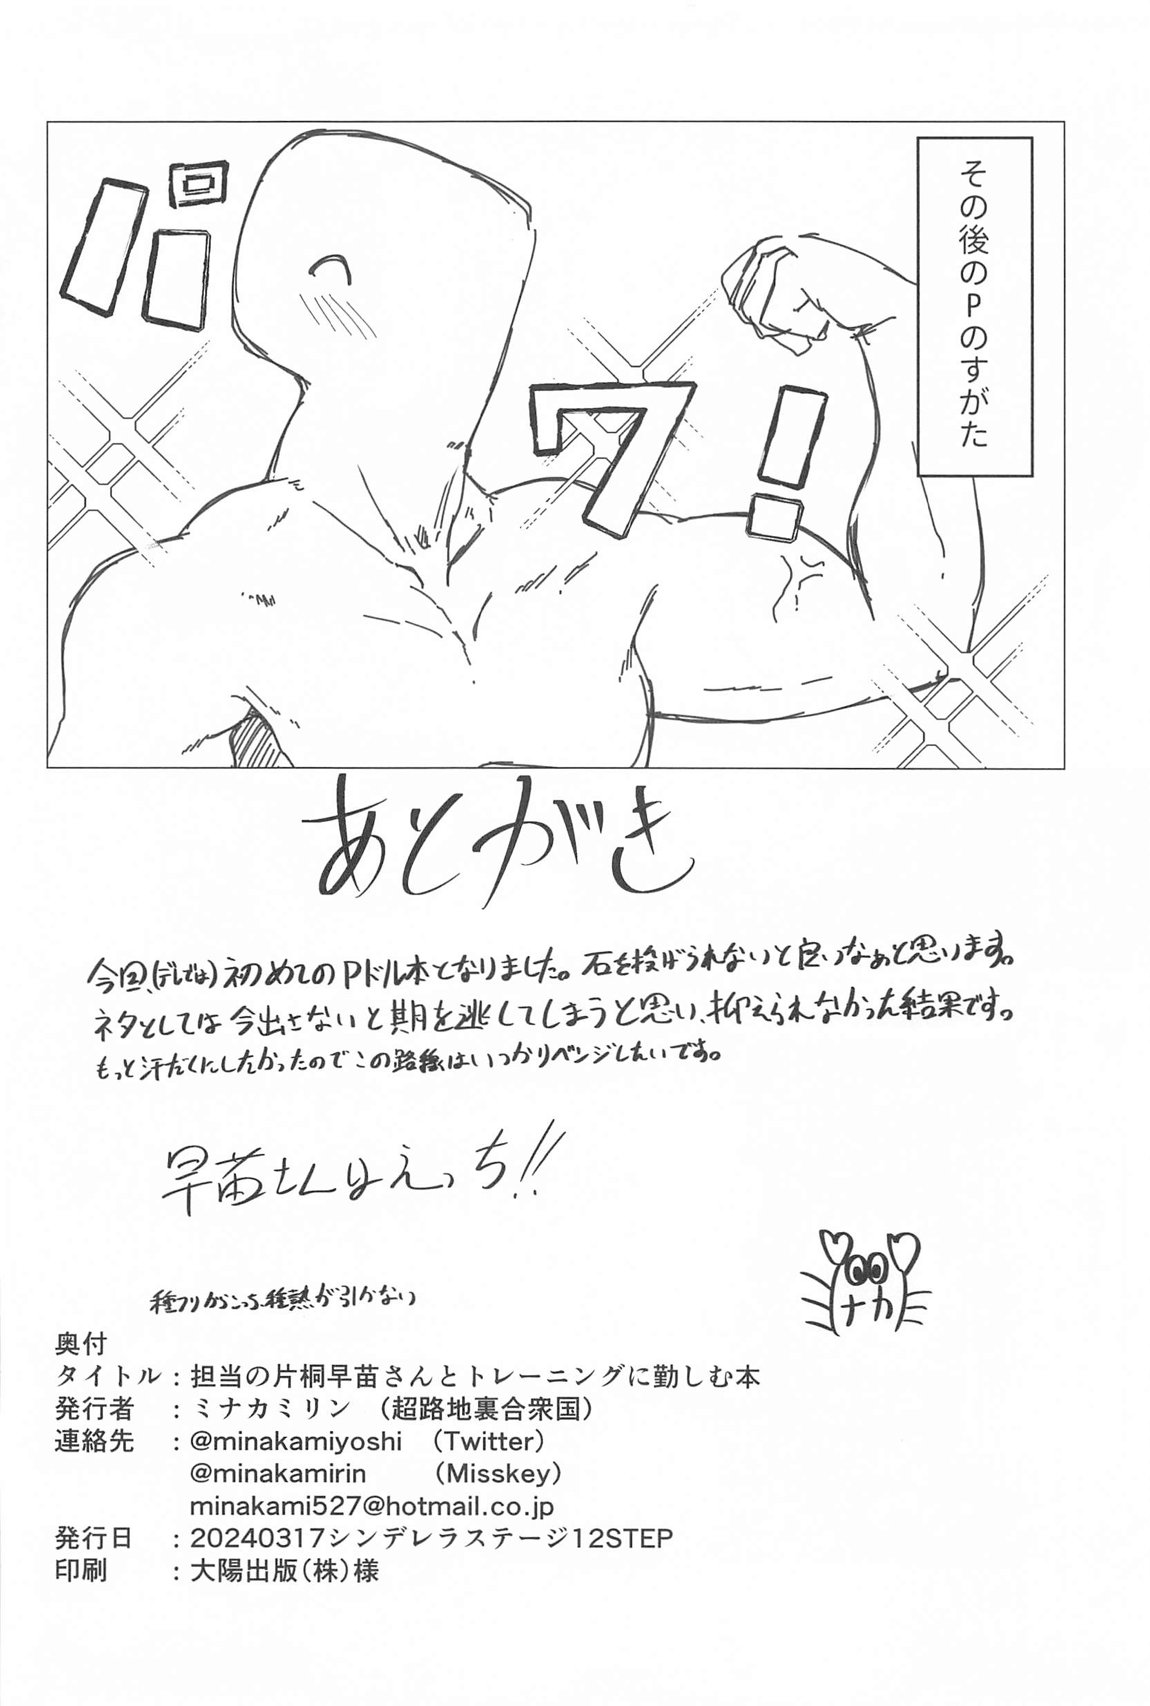 その後のPのすがた
パワー!
あとがき
今回、(デレでは)初めてのPドル本となりました。石を投げられないと良いなぁと思います。
ネタとしては今出さないと期を逃してしまうと思い、抑えられなかった結果です。
もっと汗だくにしたかったのでこの路線はいつかリベンジしたいです。
早苗さんはえっち!!
ナカ
種フリがこっち、種熱が引かない
奥付
タイトル：担当の片桐早苗さんとトレーニングに勤しむ本
発行者　：ミナカミリン　（超路地裏合衆国）
連絡先　：@minakamiyoshi　（Twitter）
@minakamirin　　（Misskey）
minakami527@hotmail.co.jp
発行日　：20240317シンデレラステージ12STEP
印刷　　：大陽出版（株）様